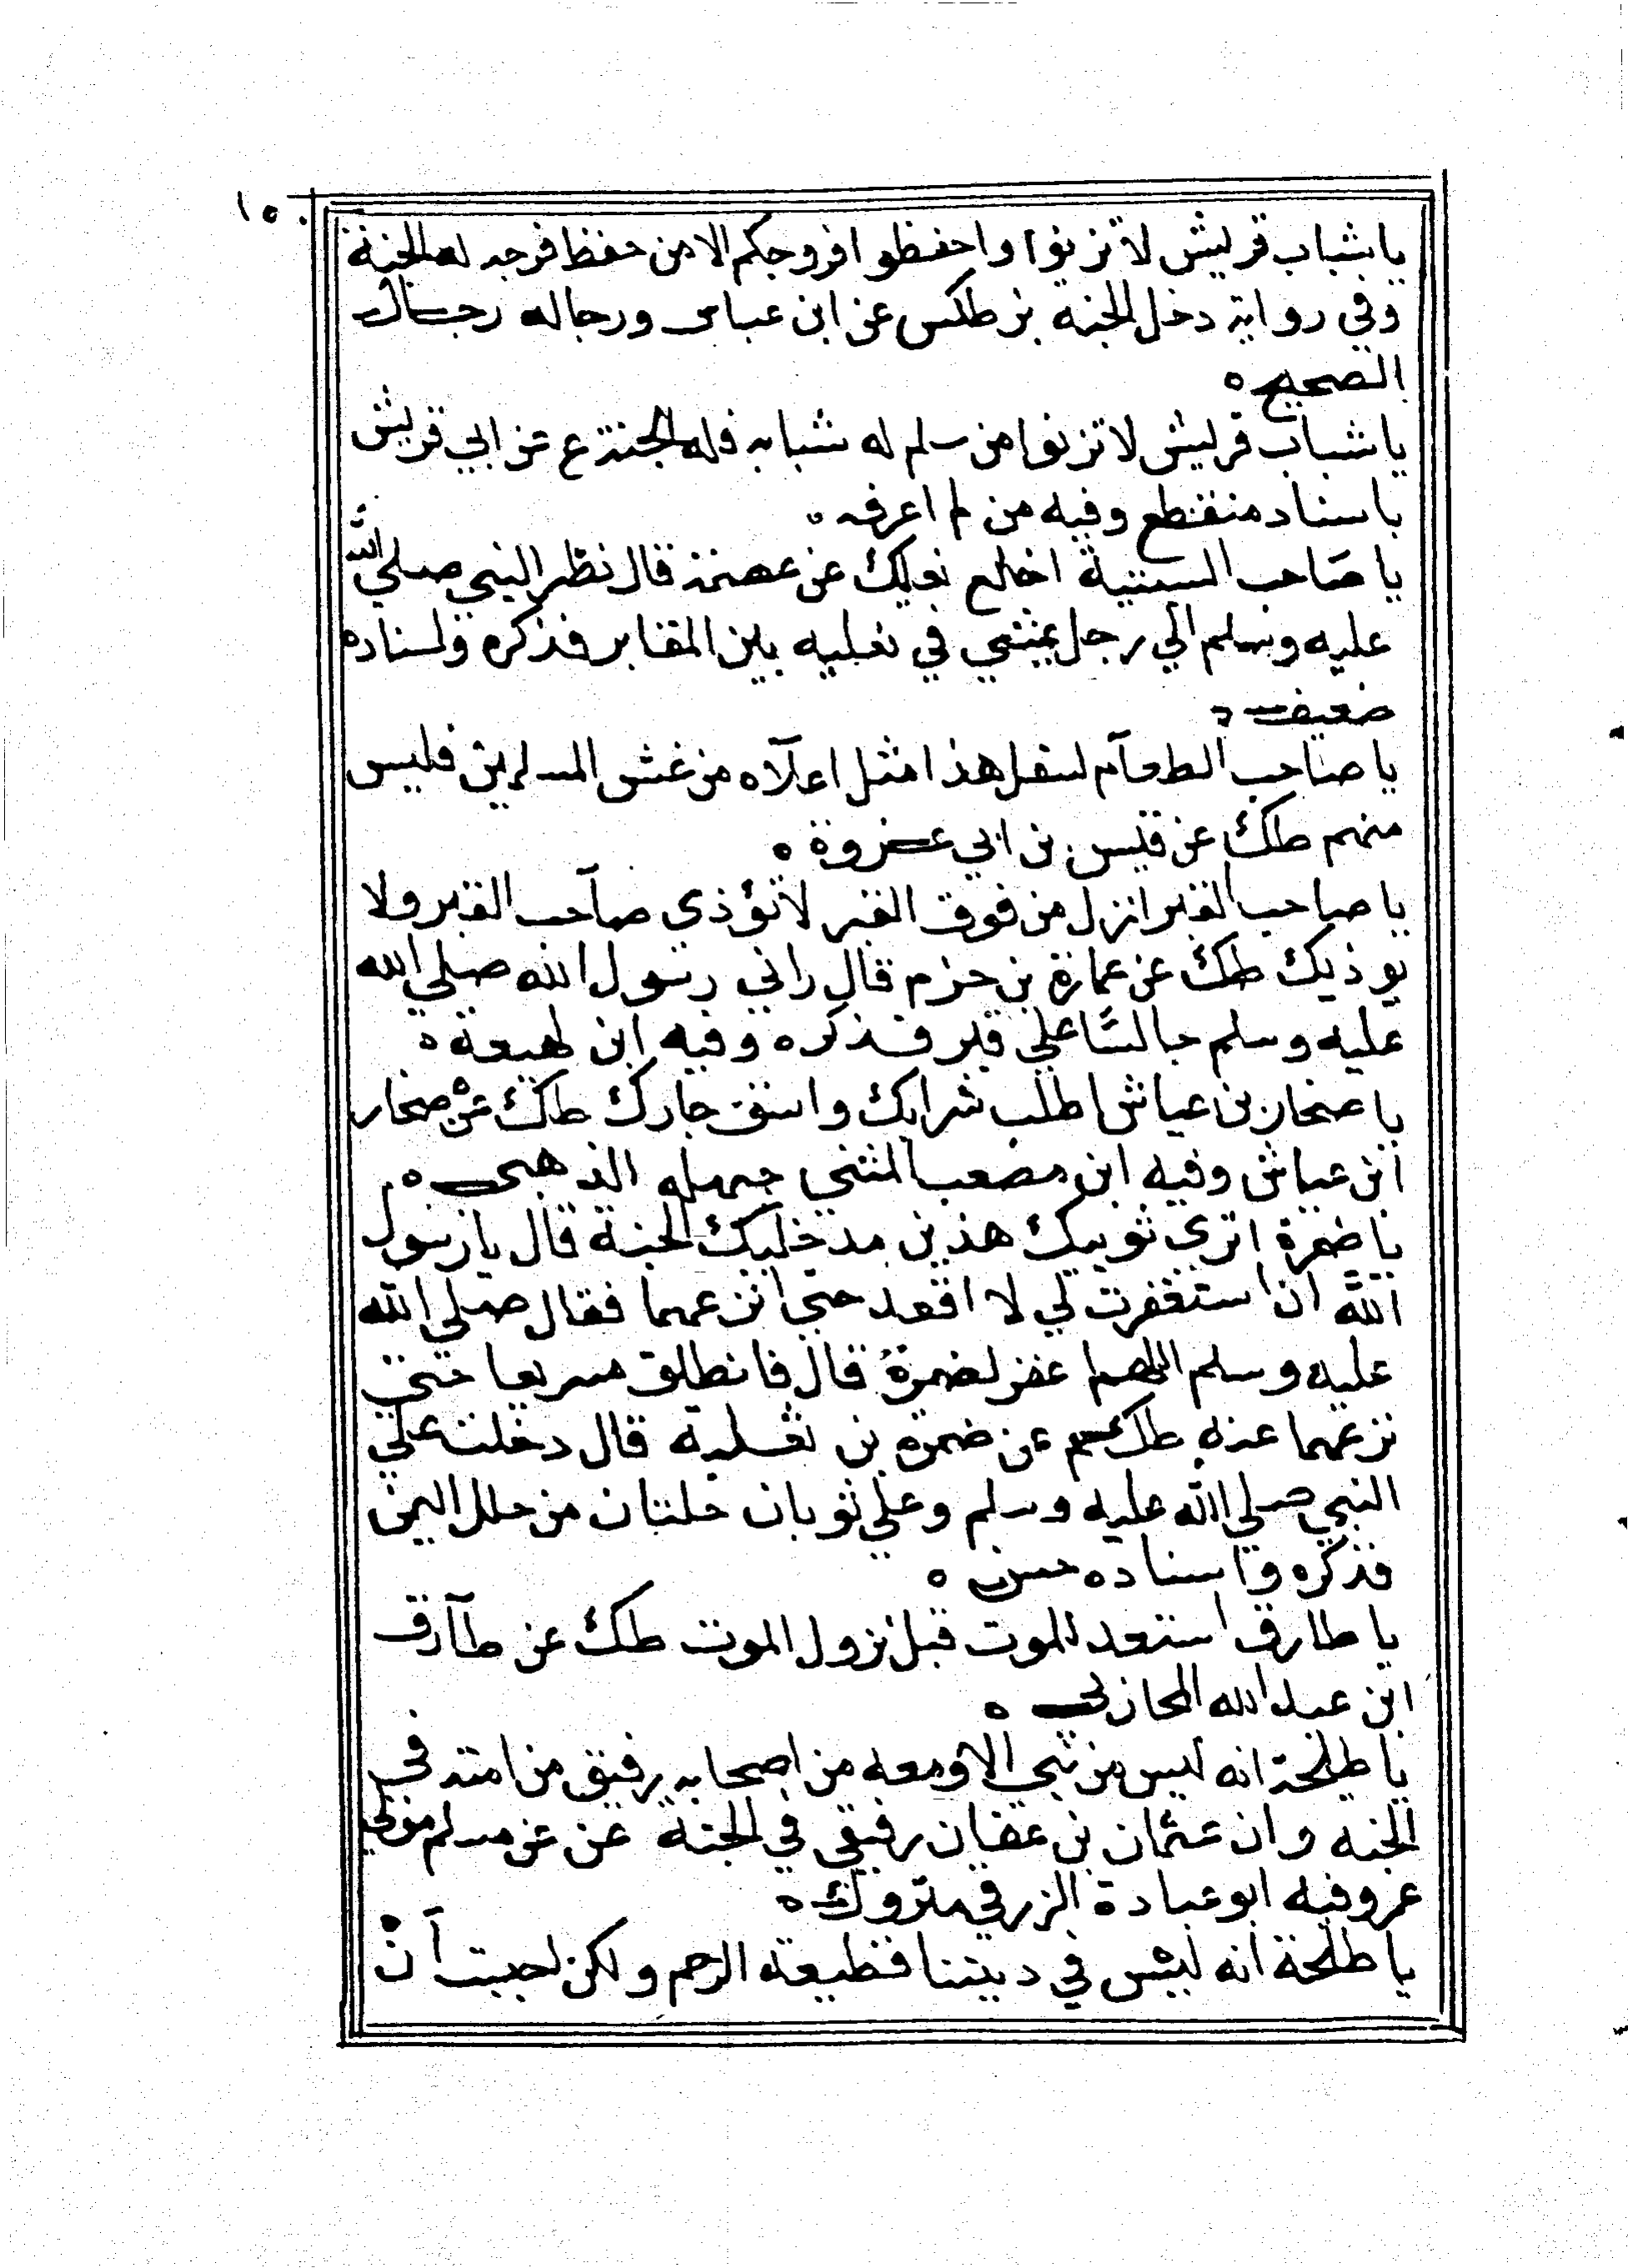 ١٥٠
يا شباب قريش لا تزنوا واحفظوا فروجكم الا من حفظ فرجه له الجنة
وفي رواية دخل الجنة بز طكس عن ابن عباس ورجاله رجال
الصحيح ه
يا شباب قريش لا تزنوا من سلم له شبابه فله الجنة ع عن ابي قريش
باسناد منقطع وفيه من لم اعرفه ه
يا صاحب السبتية اخلع نعليك عن عصمة قال نظر النبي صلي الله
عليه وسلم الي رجل يمشي في نعليه بين المقابر فذكره واسناده
ضعيف ه
يا صاحب الطعام اسفل هذا مثل اعلاه من غش المسلمين فليس
منهم طك عن قيس بن ابي عزوة ه
يا صاحب القبر انزل من فوق القبر لا تؤذي صاحب القبر ولا
يوذيك طك عن عمارة بن حزم قال راني رسول الله صلي الله
عليه وسلم جالسا علي قبر فذكره وفيه ابن لهيعة ه
يا صحار بن عياش اطلب شرابك واسق جارك طك عن صحار
ابن عياش وفيه ابن مصعب المثني جهله الذهبي ه
يا ضمرة اتري ثوبيك هذين مدخليك الجنة قال يا رسول
الله ان استغفرت لي لا اقعد حتي انزعهما فقال صلي الله
عليه وسلم اللهم اغفر لضمرة قال فانطلق سريعا حتي
نزعهما عنه طك عن ضمرة بن ثعلبة قال دخلت علي
النبي صلي الله عليه وسلم وعلي ثوبان حلتان من حلل اليمن
فذكره واسناده حسن ه
يا طارق استعد للموت قبل نزول الموت طك عن طارق
ابن عبد الله المحاربي ه
يا طلحة انه ليس من نبي الا ومعه من اصحابه رفيق من امته في
الجنه وان عثمان بن عفان رفيقي في الجنة عن عن مسلم مولي
عمر وفيه ابو عبادة الزرقي متروك ه
يا طلحة انه ليس في ديننا قطيعة الرحم ولكن احببت ان